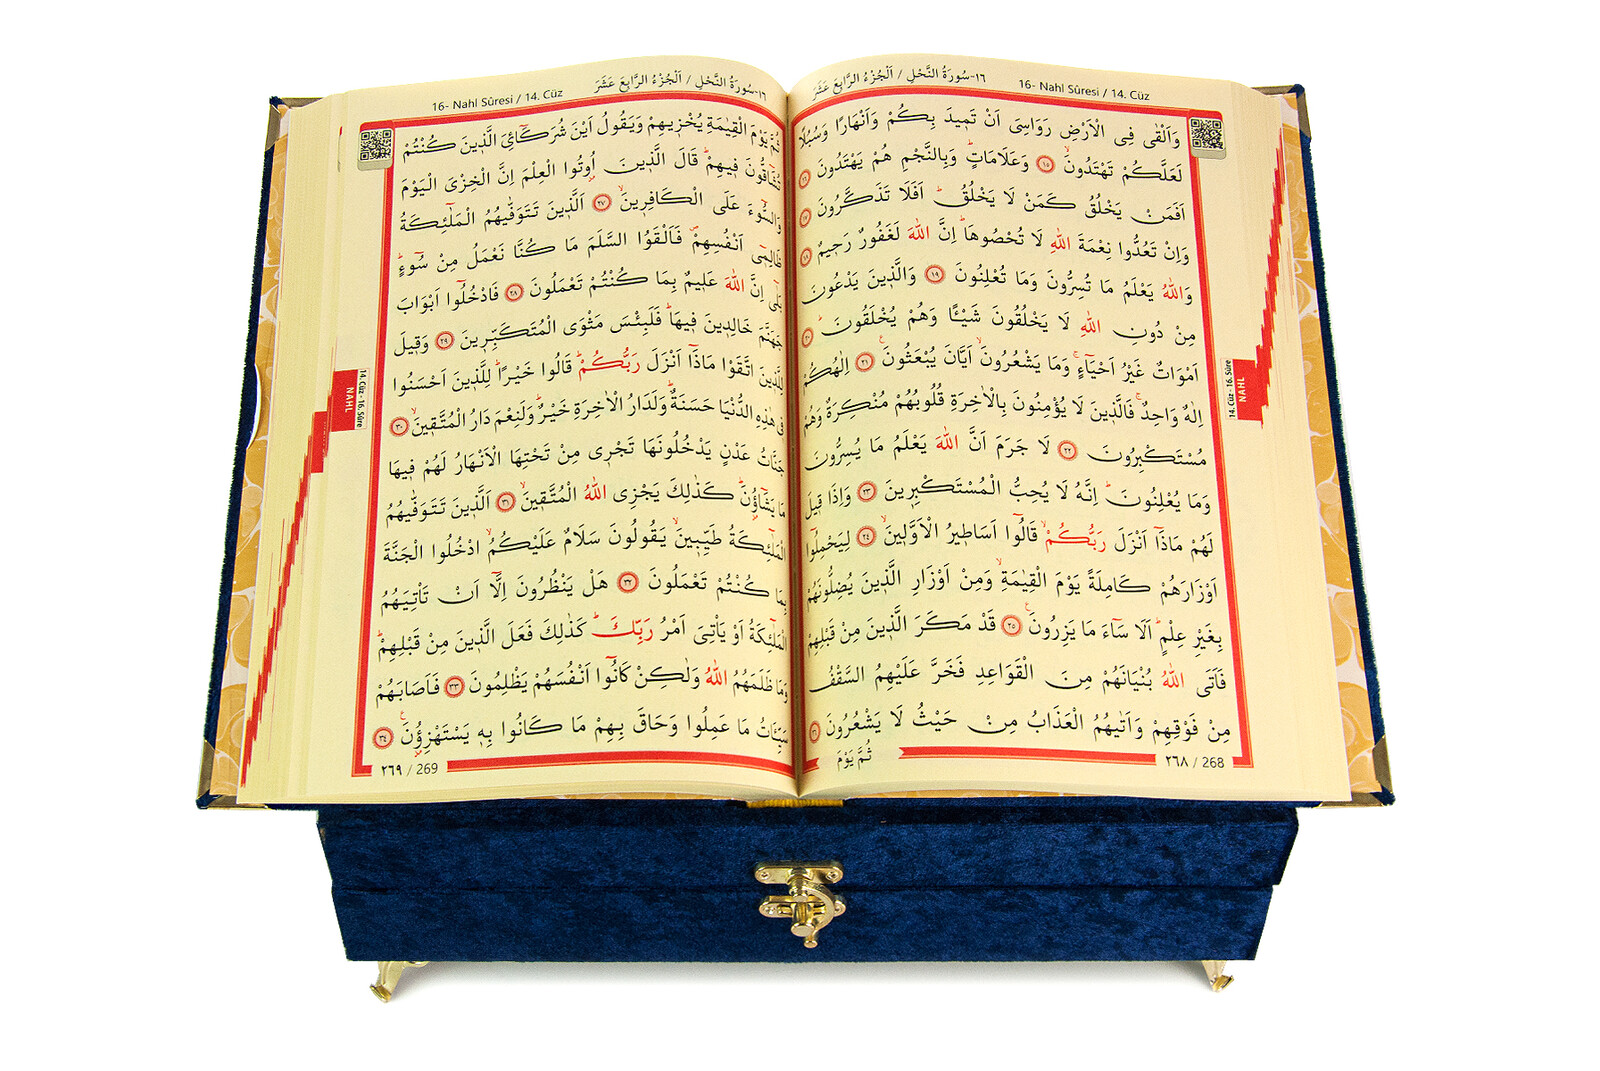 ١٦-سُورَةُ النَّحْلِ / اَلْجُزْءُ الرَّابِعَ عَشَرَ
16- Nahl Sûresi / 14. Cüz
وَاَلْقٰى فِى الْاَرْضِ رَوَاسِىَ اَنْ تَمٖيدَ بِكُمْ وَاَنْهَارًا وَسُبُلًا
لَعَلَّكُمْ تَهْتَدُونَۙ ١٥ وَعَلَامَاتٍؕ وَبِالنَّجْمِ هُمْ يَهْتَدُونَ ١٦
اَفَمَنْ يَخْلُقُ كَمَنْ لَا يَخْلُقُؕ اَفَلَا تَذَكَّرُونَ ١٧
وَاِنْ تَعُدُّوا نِعْمَةَ اللّٰهِ لَا تُحْصُوهَاؕ اِنَّ اللّٰهَ لَغَفُورٌ رَحٖيمٌ ١٨
وَاللّٰهُ يَعْلَمُ مَا تُسِرُّونَ وَمَا تُعْلِنُونَ ١٩ وَالَّذٖينَ يَدْعُونَ
مِنْ دُونِ اللّٰهِ لَا يَخْلُقُونَ شَيْـًٔا وَهُمْ يُخْلَقُونَؕ ٢٠
اَمْوَاتٌ غَيْرُ اَحْيَٓاءٍۚ وَمَا يَشْعُرُونَۙ اَيَّانَ يُبْعَثُونَࣖ ٢١ اِلٰهُكُمْ
اِلٰهٌ وَاحِدٌۚ فَالَّذٖينَ لَا يُؤْمِنُونَ بِالْاٰخِرَةِ قُلُوبُهُمْ مُنْكِرَةٌ وَهُمْ
مُسْتَكْبِرُونَ ٢٢ لَا جَرَمَ اَنَّ اللّٰهَ يَعْلَمُ مَا يُسِرُّونَ
وَمَا يُعْلِنُونَؕ اِنَّهُ لَا يُحِبُّ الْمُسْتَكْبِرٖينَ ٢٣ وَاِذَا قٖيلَ
لَهُمْ مَاذَٓا اَنْزَلَ رَبُّكُمْۙ قَالُٓوا اَسَاطٖيرُ الْاَوَّلٖينَۙ ٢٤ لِيَحْمِلُٓوا
اَوْزَارَهُمْ كَامِلَةً يَوْمَ الْقِيٰمَةِۙ وَمِنْ اَوْزَارِ الَّذٖينَ يُضِلُّونَهُمْ
بِغَيْرِ عِلْمٍؕ اَلَا سَٓاءَ مَا يَزِرُونَࣖ ٢٥ قَدْ مَكَرَ الَّذٖينَ مِنْ قَبْلِهِمْ
فَاَتَى اللّٰهُ بُنْيَانَهُمْ مِنَ الْقَوَاعِدِ فَخَرَّ عَلَيْهِمُ السَّقْفُ
مِنْ فَوْقِهِمْ وَاَتٰيهُمُ الْعَذَابُ مِنْ حَيْثُ لَا يَشْعُرُونَ ٢٦
ثُمَّ يَوْمَ
٢٦٨ / 268
14. Cüz - 16. Sûre
NAHL
16- Nahl Sûresi / 14. Cüz
١٦-سُورَةُ النَّحْلِ / اَلْجُزْءُ الرَّابِعَ عَشَرَ
ثُمَّ يَوْمَ الْقِيٰمَةِ يُخْزٖيهِمْ وَيَقُولُ اَيْنَ شُرَكَٓائِىَ الَّذٖينَ كُنْتُمْ
تُشَٓاقُّونَ فٖيهِمْؕ قَالَ الَّذٖينَ اُوتُوا الْعِلْمَ اِنَّ الْخِزْىَ الْيَوْمَ
وَالسُّٓوءَ عَلَى الْكَافِرٖينَۙ ٢٧ اَلَّذٖينَ تَتَوَفّٰيهُمُ الْمَلٰٓئِكَةُ
ظَالِمٖٓى اَنْفُسِهِمْࣕ فَاَلْقَوُا السَّلَمَ مَا كُنَّا نَعْمَلُ مِنْ سُٓوءٍؕ
بَلٰٓى اِنَّ اللّٰهَ عَلٖيمٌ بِمَا كُنْتُمْ تَعْمَلُونَ ٢٨ فَادْخُلُٓوا اَبْوَابَ
جَهَنَّمَ خَالِدٖينَ فٖيهَاؕ فَلَبِئْسَ مَثْوَى الْمُتَكَبِّرٖينَ ٢٩ وَقٖيلَ
لِلَّذٖينَ اتَّقَوْا مَاذَٓا اَنْزَلَ رَبُّكُمْؕ قَالُوا خَيْرًاؕ لِلَّذٖينَ اَحْسَنُوا
فٖى هٰذِهِ الدُّنْيَا حَسَنَةٌؕ وَلَدَارُ الْاٰخِرَةِ خَيْرٌؕ وَلَنِعْمَ دَارُ الْمُتَّقٖينَۙ ٣٠
جَنَّاتُ عَدْنٍ يَدْخُلُونَهَا تَجْرٖى مِنْ تَحْتِهَا الْاَنْهَارُ لَهُمْ فٖيهَا
مَا يَشَٓاؤُ۫نَؕ كَذٰلِكَ يَجْزِى اللّٰهُ الْمُتَّقٖينَۙ ٣١ اَلَّذٖينَ تَتَوَفّٰيهُمُ
الْمَلٰٓئِكَةُ طَيِّبٖينَۙ يَقُولُونَ سَلَامٌ عَلَيْكُمُۙ ادْخُلُوا الْجَنَّةَ
بِمَا كُنْتُمْ تَعْمَلُونَ ٣٢ هَلْ يَنْظُرُونَ اِلَّٓا اَنْ تَاْتِيَهُمُ
الْمَلٰٓئِكَةُ اَوْ يَاْتِىَ اَمْرُ رَبِّكَؕ كَذٰلِكَ فَعَلَ الَّذٖينَ مِنْ قَبْلِهِمْؕ
وَمَا ظَلَمَهُمُ اللّٰهُ وَلٰكِنْ كَانُٓوا اَنْفُسَهُمْ يَظْلِمُونَ ٣٣ فَاَصَابَهُمْ
سَيِّـَٔاتُ مَا عَمِلُوا وَحَاقَ بِهِمْ مَا كَانُوا بِهٖ يَسْتَهْزِؤُ۫نَࣖ ٣٤
٢٦٩ / 269
14. Cüz - 16. Sûre
NAHL